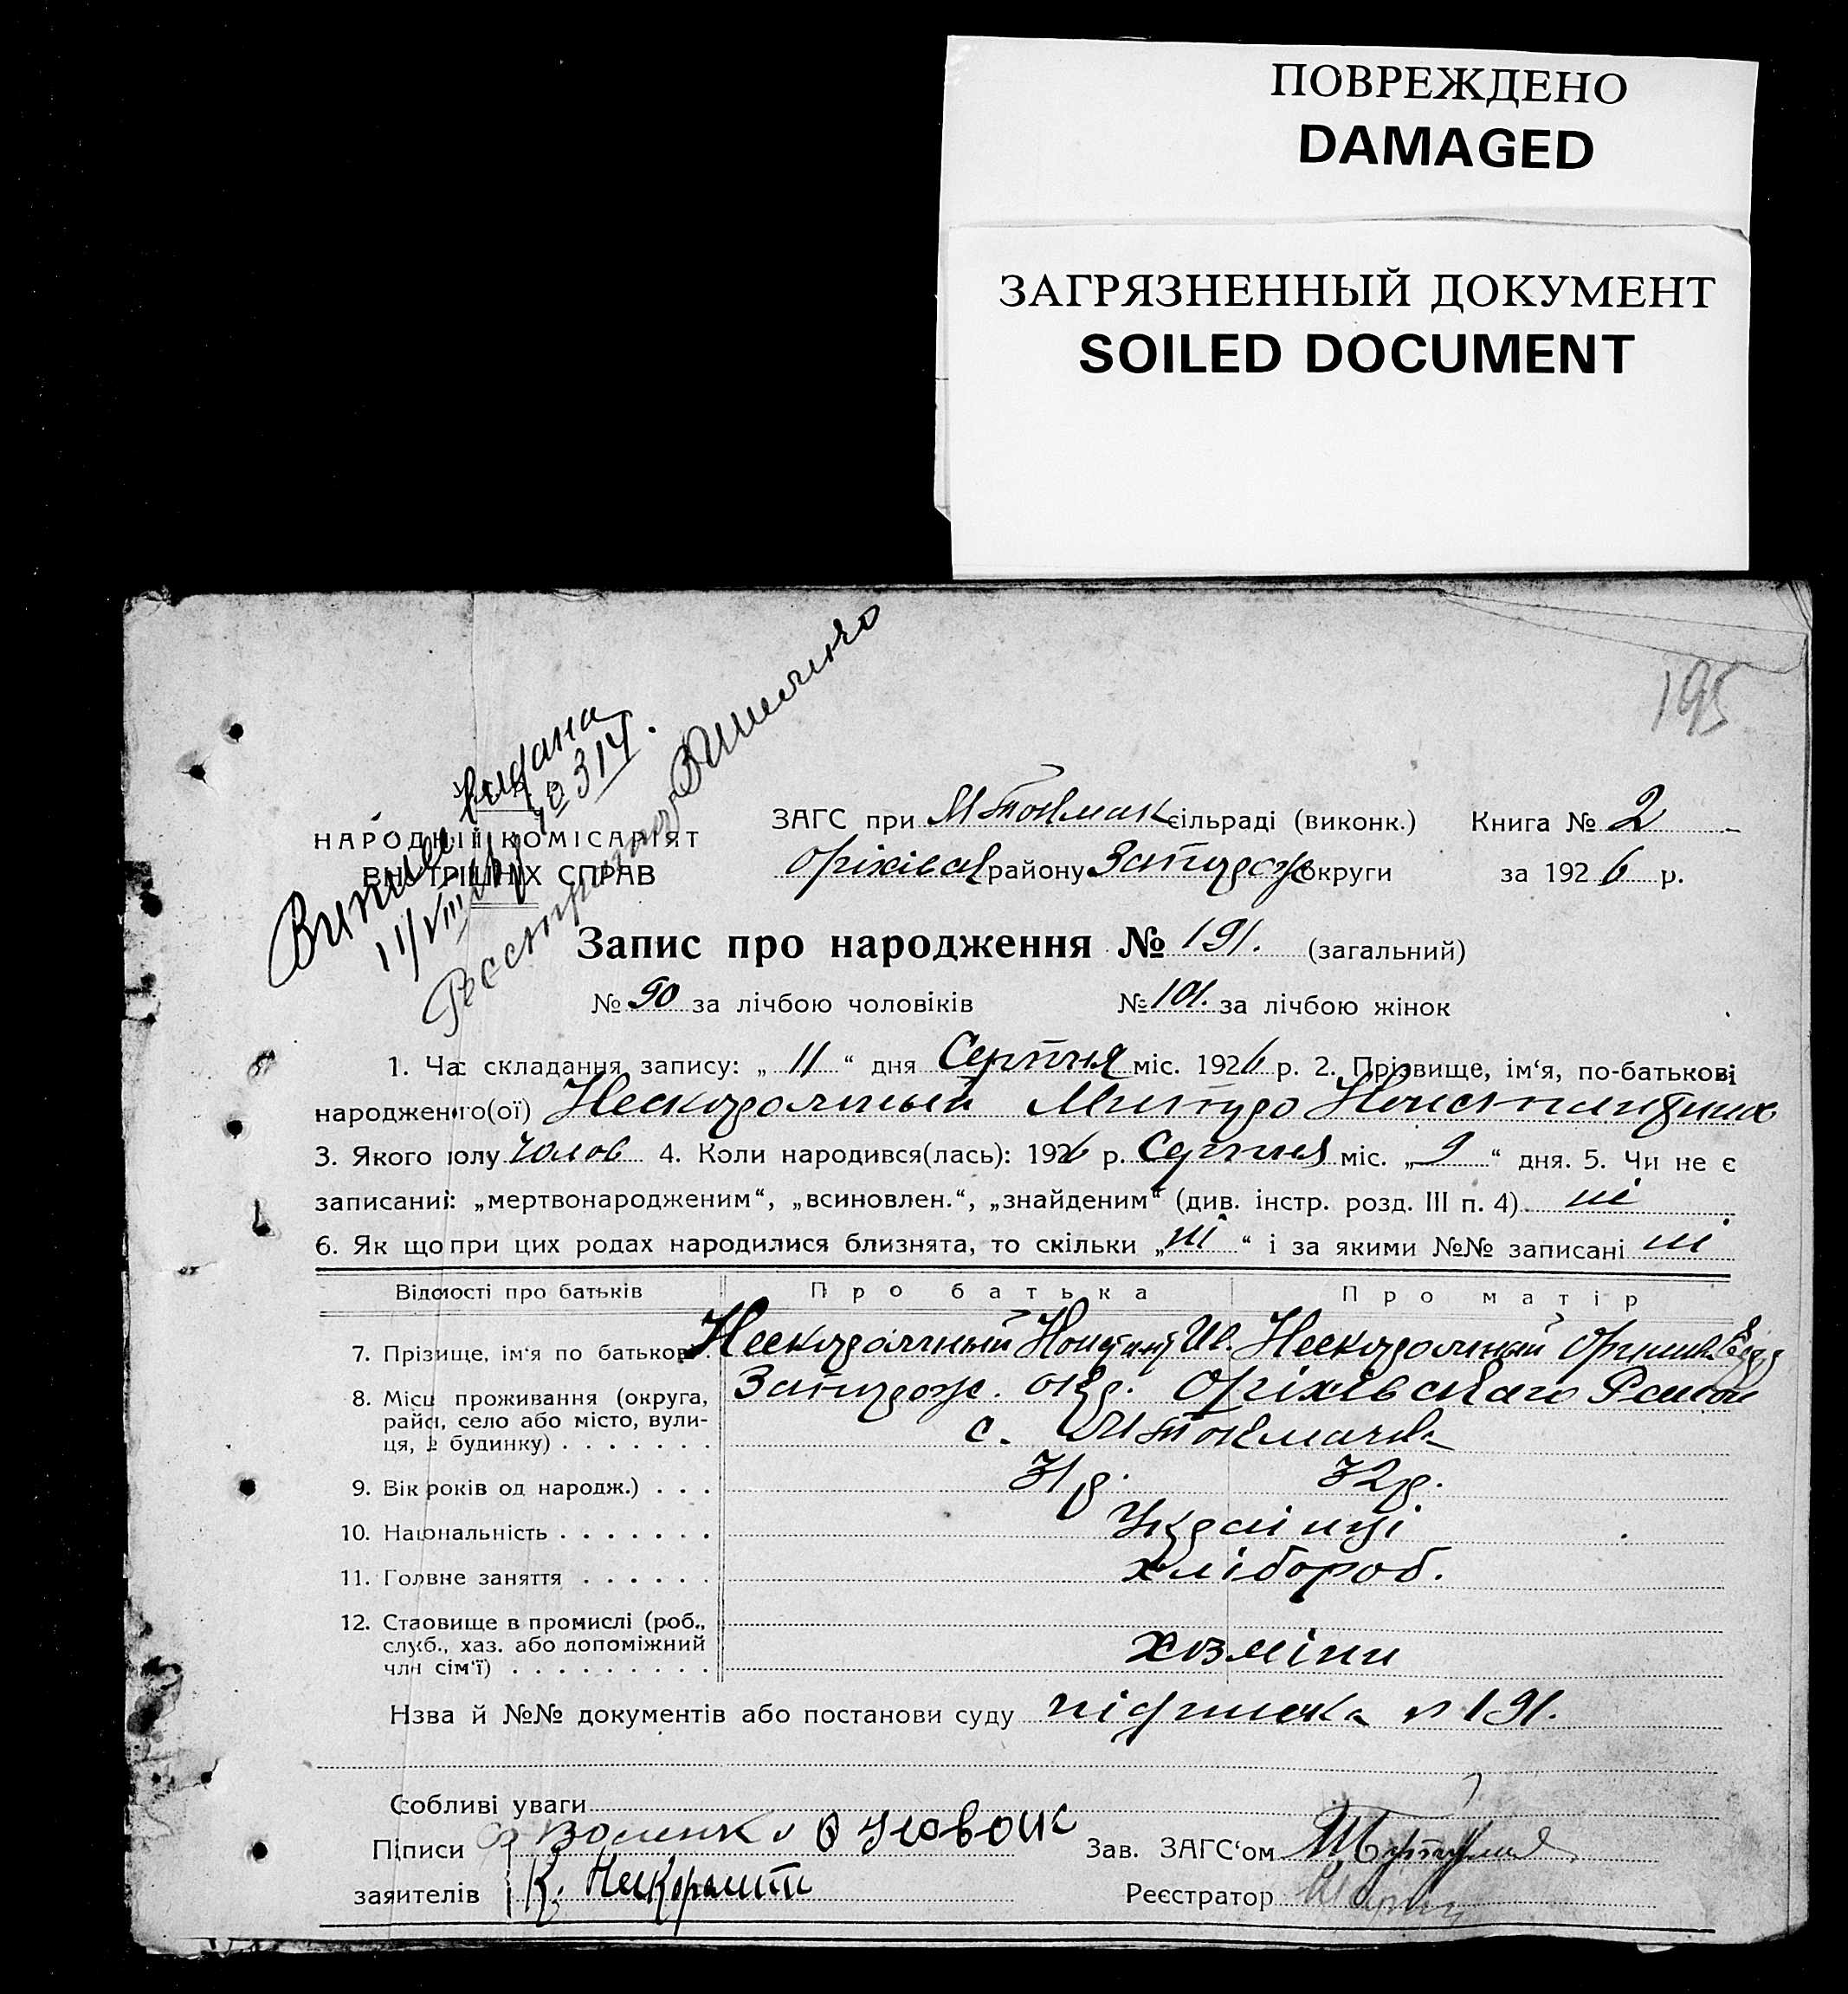 ПОВРЕЖДЕНО
DAMAGED
ЗАГРЯЗНЕННЫЙ ДОКУМЕНТ
SOILED DOCUMENT
195
Випись видана
11/VIII
НАРОДНІЙ КОМІСАРІЯТ
ВНУТРІШНІХ СПРАВ
ЗАГС при М Токмак сільраді (виконк.) Книга № 2
Оріхівськ району Запорож округи за 1926 р.
Запис про народження № 191. (загальний)
№ 90 за лічбою чоловіків № 101. за лічбою жінок
1. Час складання запису: „ 11 “ дня Серпня міс. 1926 р. 2. Прізвище, ім‘я, по-батькові
народженого(ої) Нескоромный Митро
3. Якого полу чолов 4. Коли народився(лась): 1926 р. Серпня міс. „ 9 “ дня. 5. Чи не є
записаний: „мертвонародженим“, „всиновлен.“, „знайденим“ (див. інстр. розд. III п. 4) ні
6. Як що при цих родах народилися близнята, то скільки „ ні “ і за якими №№ записані ні
Відомості про батьків Про батька Про матір
7. Прізвище, ім‘я по батькові. Нескоромный Констант Ив. Нескоромный Оришка
8. Місце проживання (округа, Запорож. окр. Оріхівського Району
район, село або місто, вули-
ця, № будинку) . . . . . . . с. М Токмачка
9. Вік років од народж.) . . . 31 р. 32 р.
10. Національність . . . . . . . Українці
11. Головне заняття . . . . . . хлібороб.
12. Становище в промислі (роб.,
служб., хаз. або допоміжний
член сім‘ї) . . . . . . . . . хозяіни
Назва й №№ документів або постанови суду підписка № 191.
Собливі уваги
Підписи Зав. ЗАГС‘ом
заявителів К. Реєстратор